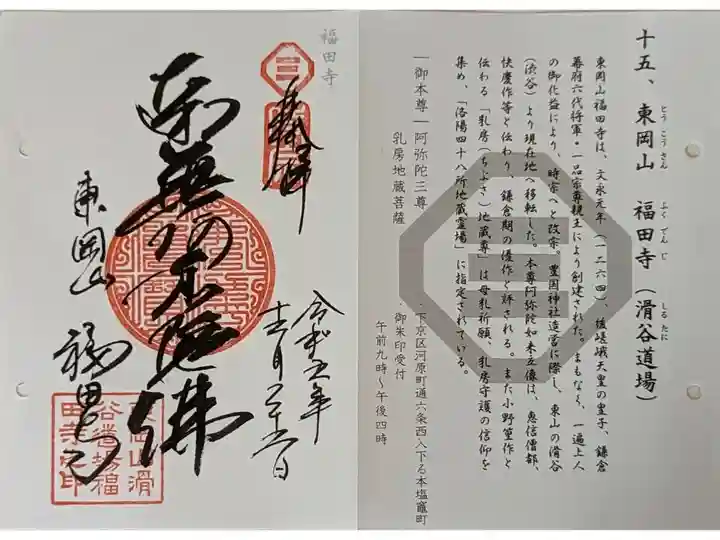 福田寺
奉拝
南無阿弥陀佛
東岡山
福田寺
令和五年
十二月二十六日
東岡山滑
谷道場福
田寺之印
十五、東岡山　福田寺（滑谷道場）
とうこうさん　ふくでんじ　しるたに
東岡山福田寺は、文永元年（一二六四）、後嵯峨天皇の皇子、鎌倉
幕府六代将軍・一品宗尊親王により創建された。まもなく、一遍上人
の御化益により、時宗へと改宗。豊国神社造営に際し、東山の滑谷
（渋谷）より現在地へ移転した。本尊阿弥陀如来立像は、恵信僧都、
快慶作等と伝わり、鎌倉期の優作と評される。また小野篁作と
伝わる「乳房（ちぶさ）地蔵尊」は母乳祈願、乳房守護の信仰を
集め、「洛陽四十八所地蔵霊場」に指定されている。
｜御本尊｜阿弥陀三尊
乳房地蔵菩薩
・下京区河原町通六条西入下る本塩竈町
御朱印受付
午前九時～午後四時